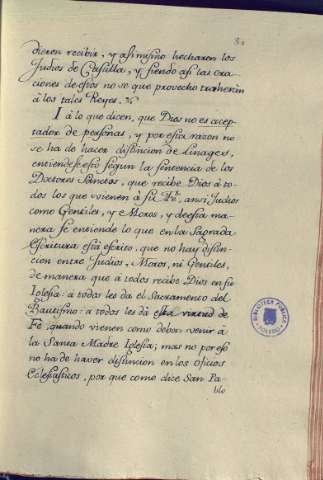 dieren recibir, y asimismo hecharon los
Judios de Castilla, y siendo asi las ora-
ciones de estos no se que provecho traherian
à los tales Reyes.
I à lo que dicen, que Dios no es acep-
tador de personas, y por esta razon no
se ha de hacer distincion de linages,
entiendese esto segun la sentencia de los
Doctores Santos, que recibe Dios à to-
dos los que vienen à su Fè, ansi Judios
como Gentiles, y Moros, y deesta ma-
nera se entiende lo que en la Sagrada
Escritura està escrito, que no hay distin-
cion entre Judios, Moros, ni Gentiles,
de manera que à todos recibe Dios en su
Iglesia: à todas les da el Sacramento del
Bautismo: à todos les dà esta virtud de
Fè, quando vienen como deben venir à
la Santa Madre Iglesia; mas no por eso
no ha de haver distincion en los Oficios
Eclesiasticos, por que como dice San Pa-
blo
BIBLIOTECA PUBLICA
TOLEDO